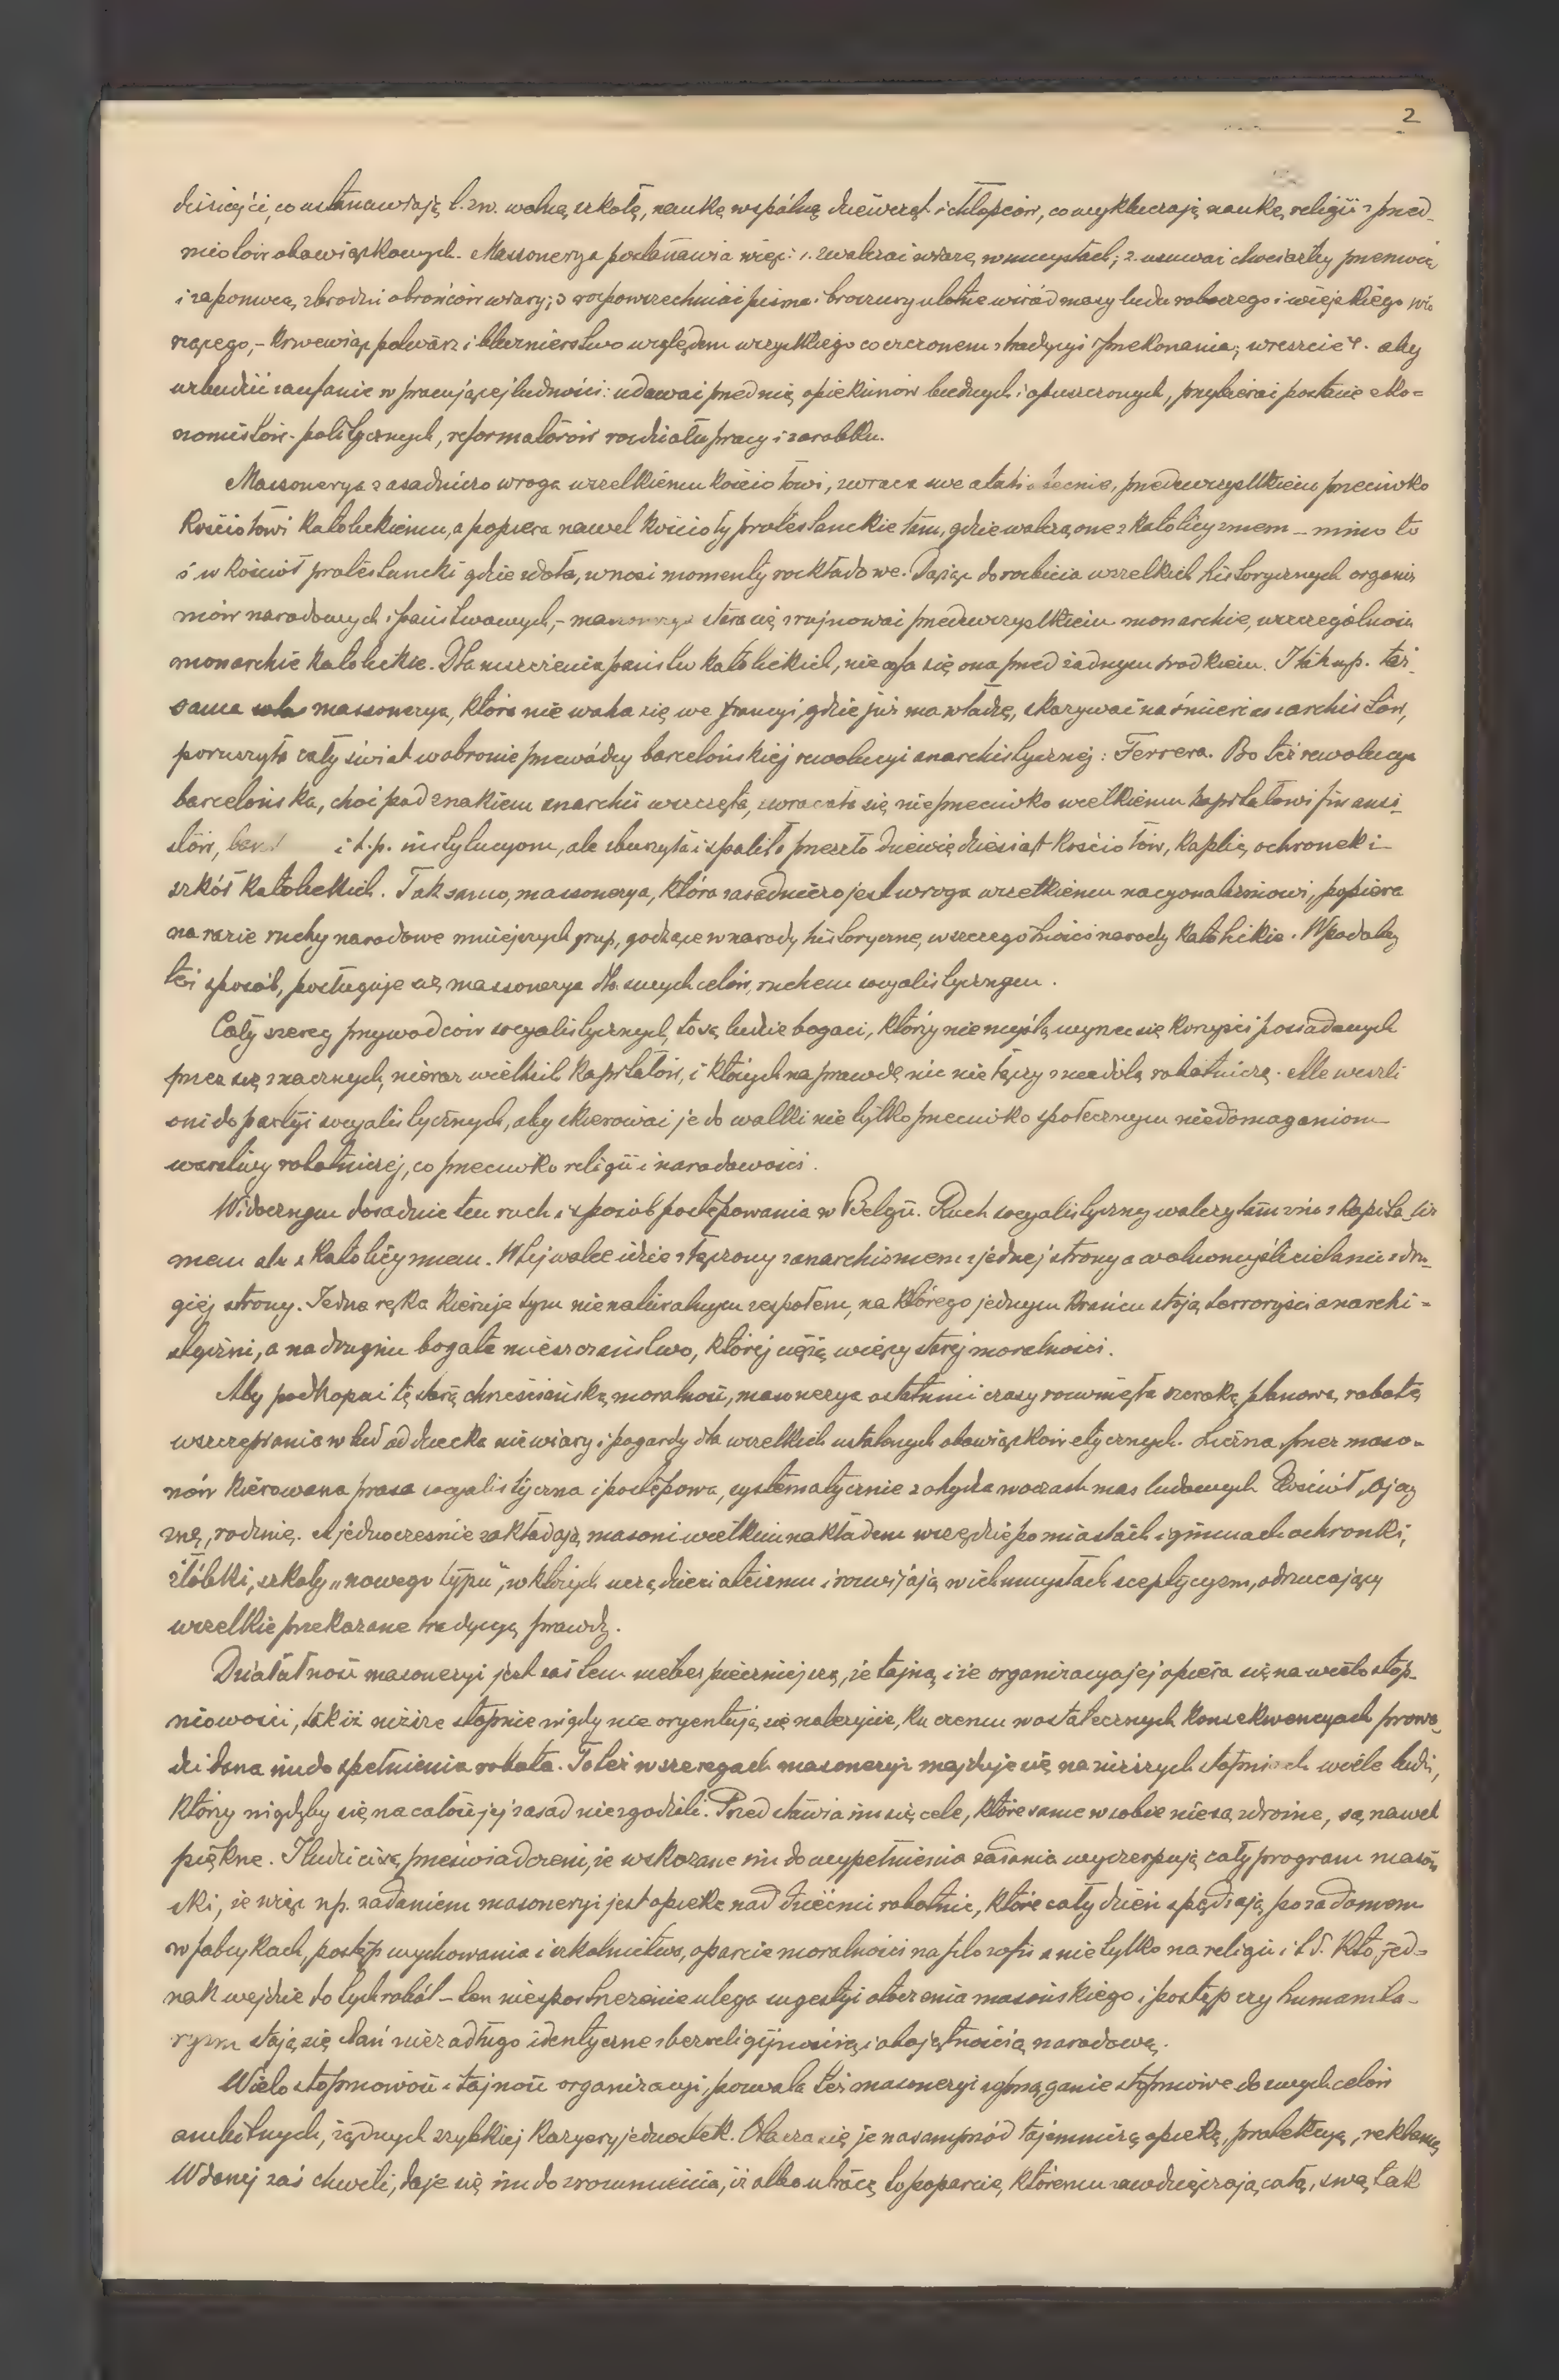 2
dzisiejsi, co ustanawiają t. zw. wolną szkołę, naukę wspólną dziewcząt i chłopców, co wykluczają naukę religii z przed-
miotów obowiązkowych. Massonerya postanawia więc: 1. zwalczać wiarę w umysłach; 2. usuwać choćażby przemocą
i zapomocą zbrodni obrońców wiary; 3 rozpowszechniać pisma i broszury ulotne wśród masy ludu roboczego i wiejskiego wie
rzącego, – krzewiąc potwarz i bluźnierstwo względem wszystkiego co uczczonem z tradycyi i przekonania; wreszcie 4. aby
wzbudzić zaufanie w pracującej ludności: udawać przed nią opiekunów biednych i opuszczonych, przybierać postacie eko-
nomistów - politycznych, reformatorów rozdziału pracy i zarobku.
Massonerya zasadniczo wroga wszelkiemu kościołowi, zwraca swe ataki obecnie, przedewszystkiem przeciwko
Kościołowi Katolickiemu, a popiera nawet kościoły protestanckie tam, gdzie walczą one z katolicyzmem – mimo to
i w kościół protestancki gdzie zdoła, wnosi momenty rozkładowe. Dążąc do rozbicia wszelkich historycznych organiz
mów narodowych i państwowych, – massonerya stara się zrujnować przedewszystkiem monarchie, w szczególności
monarchie katolickie. Dla niszczenia państw katolickich, nie cofa się ona przed żadnym środkiem. I tak np. taż
sama massonerya, która nie waha się we Francyi, gdzie już ma władzę, skazywać na śmierć anarchistów,
poruszyła cały świat w obronie przewódcy barcelońskiej rewolucyi anarchistycznej: Ferrera. Bo też rewolucya
barcelońska, choć pod znakiem anarchii wszczęta, zwracała się nie przeciwko wielkiemu kapitałowi finansi-
stów, i t.p. instytucyom, ale zburzyła i spaliła przeszło dziewiędziesiąt kościołów, kaplic, ochronek i
szkół katolickich. Tak samo, massonerya, która zasadniczo jest wroga wszelkiemu nacyonalizmowi, popiera
na razie ruchy narodowe mniejszych grup, godzące w narody historyczne, w szczególności narody katolickie. W podobny
też sposób, posługuje się massonerya dla swych celów, ruchem socyalistycznym.
Cały szereg przywódców socyalistycznych, to są ludzie bogaci, którzy nie myślą wyrzec się korzyści posiadanych
przez się znacznych, nieraz wielkich kapitałów, i których naprawdę nic nie łączy z niedolą robotniczą. Ale weszli
oni do partyi socyalistycznych, aby skierować je do walki nie tylko przeciwko społecznym niedomaganiom
warstwy robotniczej, co przeciwko religii i narodowości.
Widocznym dosadnie ten ruch i sposób postępowania w Belgii. Ruch socyalistyczny walczy tam nie z kapitaliz
mem ale z katolicyzmem. W tej walce idzie złączony z anarchismem z jednej strony a wolnomyślicielami z dru-
giej strony. Jedna ręka kieruje tym nienaturalnym zespołem, na którego jednym krańcu stoją terroryści anarchi-
styczni, a na drugim bogate mieszczaństwo, której ciężą więzy starej moralności.
Aby podkopać tę starą chrześciańską moralność, masonerya ostatnimi czasy rozwinęła szeroką planową robotę
wszczepiania w lud od dziecka niewiary i pogardy dla wszelkich ustalonych obowiązków etycznych. Liczna, przez maso-
nów kierowana prasa socyalistyczna i postępowa, systematycznie zohydza w oczach mas ludowych Kościół, ojczy
znę, rodzinę. A jednocześnie zakładają masoni wielkim nakładem wszędzie po miastach i gminach ochronki,
żłóbki, szkoły „nowego typu”, w których uczą dzieci ateizmu i rozwijają w ich umysłach sceptycyzm, odrzucający
wszelkie przekazane tradycyą prawdy.
Działalność masoneryi jest zaś tem niebezpieczniejszą, że tajną, i że organizacya jej opiera się na wielostop-
niowości, tak iż niższe stopnie nigdy nie oryentują się należycie, ku czemu w ostatecznych konsekwencyach prowa-
dzi dana im do spełnienia robota. To też w szeregach masoneryi znajduje się na niższych stopniach wiele ludzi,
którzy nigdyby się na całość jej zasad nie zgodzili. Przedstawia im się cele, które same w sobie nie są zdrożne, są nawet
piękne. I ludzie ci są przeświadczeni, że wskazane im do wypełnienia zadania wyczerpują cały program masoń
ski, że więc np. zadaniem masoneryi jest opieka nad dziećmi robotnic, które cały dzień spędzają poza domem
w fabrykach, postęp wychowania i szkolnictwa, oparcie moralności na filozofii a nie tylko na religii i t d. Kto jed-
nak wejdzie do tych robót – ten niespostrzeżenie ulega sugestyi otoczenia masońskiego i postęp czy humanita-
ryzm stają się dlań niezadługo identyczne z bezreligijnością i obojętnością narodową.
Wielostopniowość i tajność organizacyi, pozwala też masoneryi wprząganie stopniowe do swych celów
ambitnych, żądnych szybkiej karyery jednostek. Otacza się je nasamprzód tajemniczą opieką, protekcyą, reklamą
W danej zaś chwili, daje się im do zrozumienia, iż albo utracą to poparcie, któremu zawdzięczają całą, swą tak